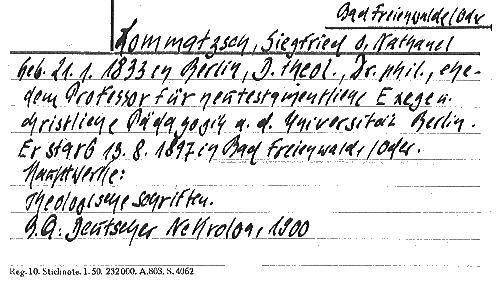 Bad Freienwalde/Odr
Lommatzsch, Siegfried O. Nathanel
geb. 21.1. 1833 in Berlin, D. theol., Dr. phil., ehe-
dem Professor für neutestamentliche Exege u.
christliche Pädagogik a. d. Universität Berlin.
Er starb 19. 8. 1897 in Bad Freienwald./Oder.
Hauptwerke:
Theologische schriften.
Deutscher Nekrolog, 1900
Reg. 10. Stichnote. 1. 50. 232000. A.803. S. 4062